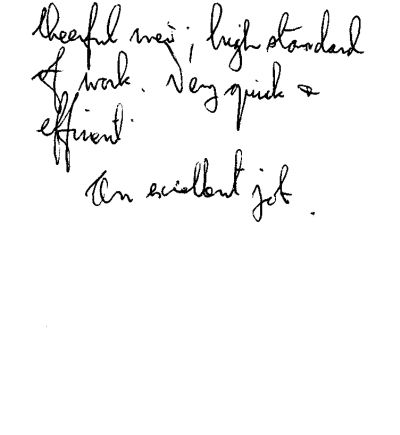 Cheerful men; high standard
of work. Very quick &
efficient.
An excellent job.